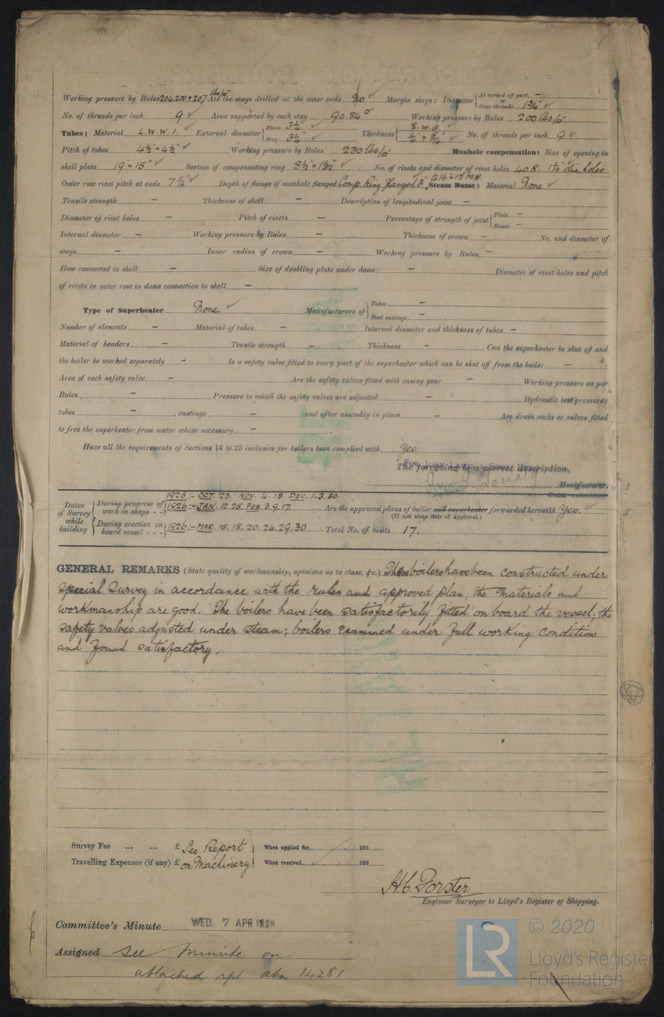 Working pressure by Rules 204.200 & 207 lbs/□" Are the stays drilled at the outer ends No ✓ Margin stays: Diameter { At turned off part, or — Over threads 1¾" ✓
No. of threads per inch 9 ✓ Area supported by each stay 90.84 □" Working pressure by Rules 200 lbs/□"
Tubes: Material L.W.I. ✓ External diameter { Plain 3¼" ✓ Stay 3¼" ✓ Thickness { 8 W.G. ✓ No. of threads per inch 9 ✓
Pitch of tubes 4½" × 4½" ✓ Working pressure by Rules 230 lbs/□" Manhole compensation: Size of opening in
shell plate 19" × 15" ✓ Section of compensating ring No. of rivets and diameter of rivet holes 40 R. dia holes
Outer row rivet pitch at ends Depth of flange if manhole flanged Comp. Ring flanged Steam Dome: Material None ✓
Tensile strength — Thickness of shell — Description of longitudinal joint —
Diameter of rivet holes — Pitch of rivets — Percentage of strength of joint { Plate — Rivets —
Internal diameter — Working pressure by Rules — Thickness of crown — No. and diameter of
stays — Inner radius of crown — Working pressure by Rules —
How connected to shell — Size of doubling plate under dome — Diameter of rivet holes and pitch
of rivets in outer row in dome connection to shell —
Type of Superheater None ✓ Manufacturers of { Tubes — Steel castings —
Number of elements — Material of tubes — Internal diameter and thickness of tubes —
Material of headers — Tensile strength — Thickness — Can the superheater be shut off and
the boiler be worked separately — Is a safety valve fitted to every part of the superheater which can be shut off from the boiler —
Area of each safety valve — Are the safety valves fitted with easing gear — Working pressure as per
Rules — Pressure to which the safety valves are adjusted — Hydraulic test pressure:
tubes — castings — and after assembly in place — Are drain cocks or valves fitted
to free the superheater from water where necessary —
Have all the requirements of Sections 14 to 23 inclusive for boilers been complied with Yes
The foregoing is a correct description,
Manufacturer.
Dates of Survey while building { During progress of work in shops - - 1925:- OCT. 23. NOV. 4. 18. DEC. 1. 3. 30.
1926:- JAN. 12. 25. FEB. 3. 9. 17. Are the approved plans of boiler and superheater forwarded herewith Yes. ✓
(If not state date of approval.)
During erection on board vessel - - - 1926:- MAR. 15. 18. 20. 24. 29. 30 Total No. of visits 17.
GENERAL REMARKS (State quality of workmanship, opinions as to class, &c.) These boilers have been constructed under
special survey in accordance with the rules and approved plan; the materials and
workmanship are good. The boilers have been satisfactorily fitted on board the vessel; the
safety valves adjusted under steam; boilers examined under full working conditions
and found satisfactory.
Survey Fee ... ... £ See Report When applied for, 192
Travelling Expenses (if any) £ on Machinery When received, 192
H.C. Forster
Engineer Surveyor to Lloyd's Register of Shipping.
Committee's Minute WED. 7 APR 1926
Assigned See minute on
attached rpt 14281
LR
© 2020
Lloyd's Register
Foundation